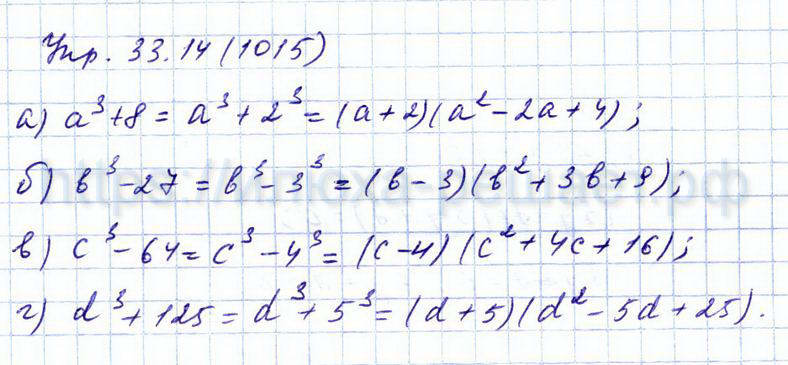 Упр. 33.14 (1015)
а) a³+8 = a³+2³ = (a+2)(a²-2a+4);
б) b³-27 = b³-3³ = (b-3)(b²+3b+9);
в) c³-64 = c³-4³ = (c-4)(c²+4c+16);
г) d³+125 = d³+5³ = (d+5)(d²-5d+25).
https://илюха-решает.рф